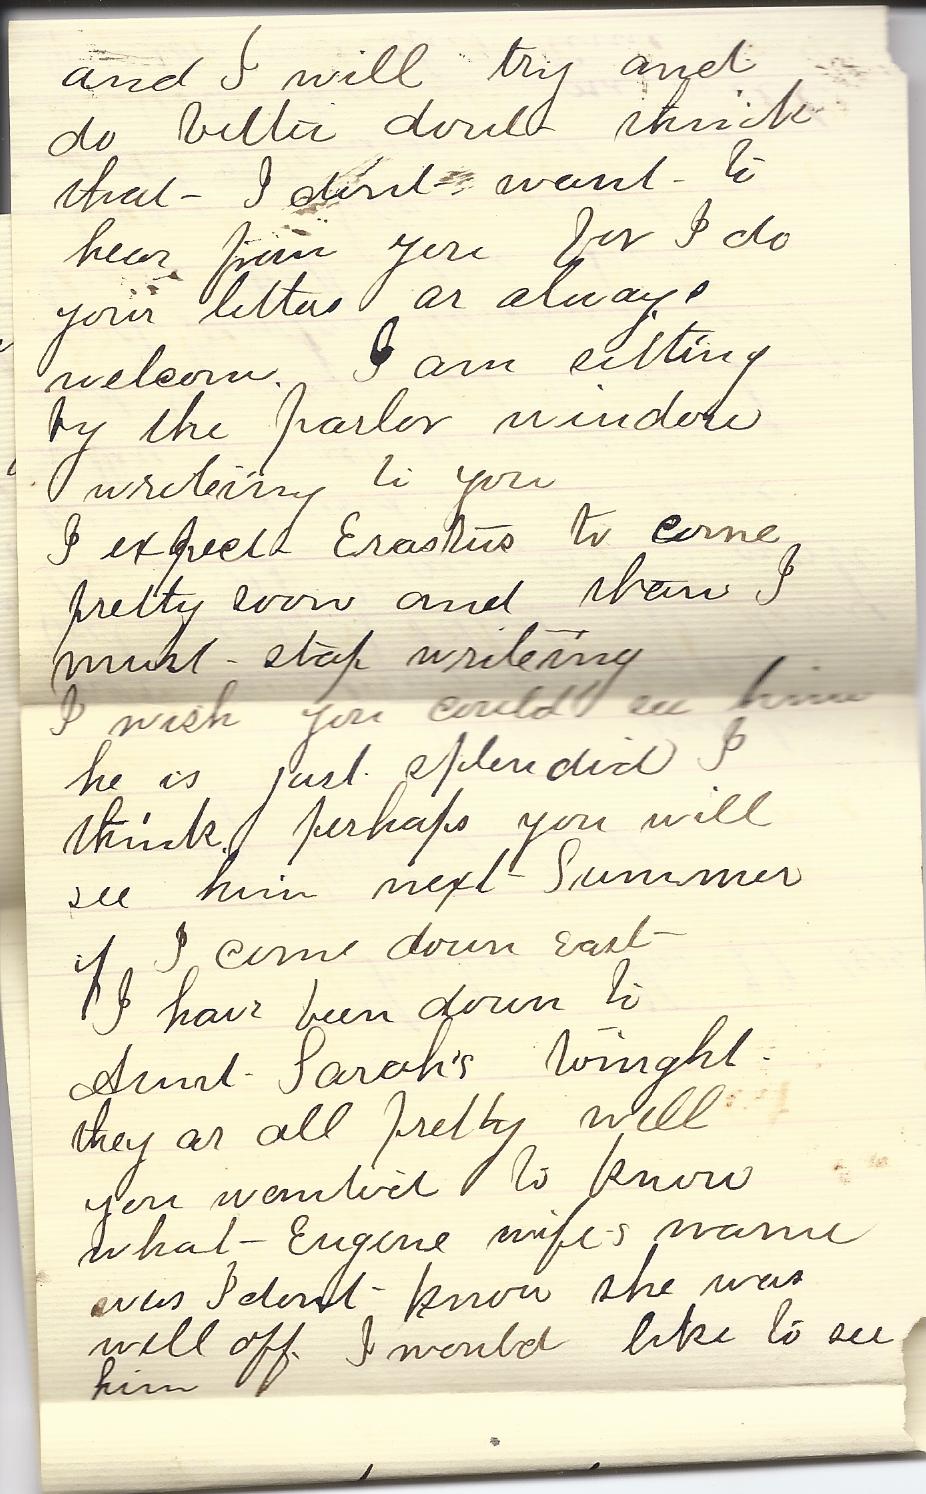 and I will try and
do better dont think
that I dont want to
hear from you for I do
your letters ar always
welcom. I am sitting
by the parlor window
writeing to you
I expect Erastus to come
pretty soon and than I
must stop writeing
I wish you could see him
he is just splendid I
think. perhaps you will
see him next Summer
if I come down east
I have been down to
Aunt Sarah's tonight.
they ar all pretty well
you wanted to know
what Eugene wife's name
was I dont know she was
well off. I would like to see
him